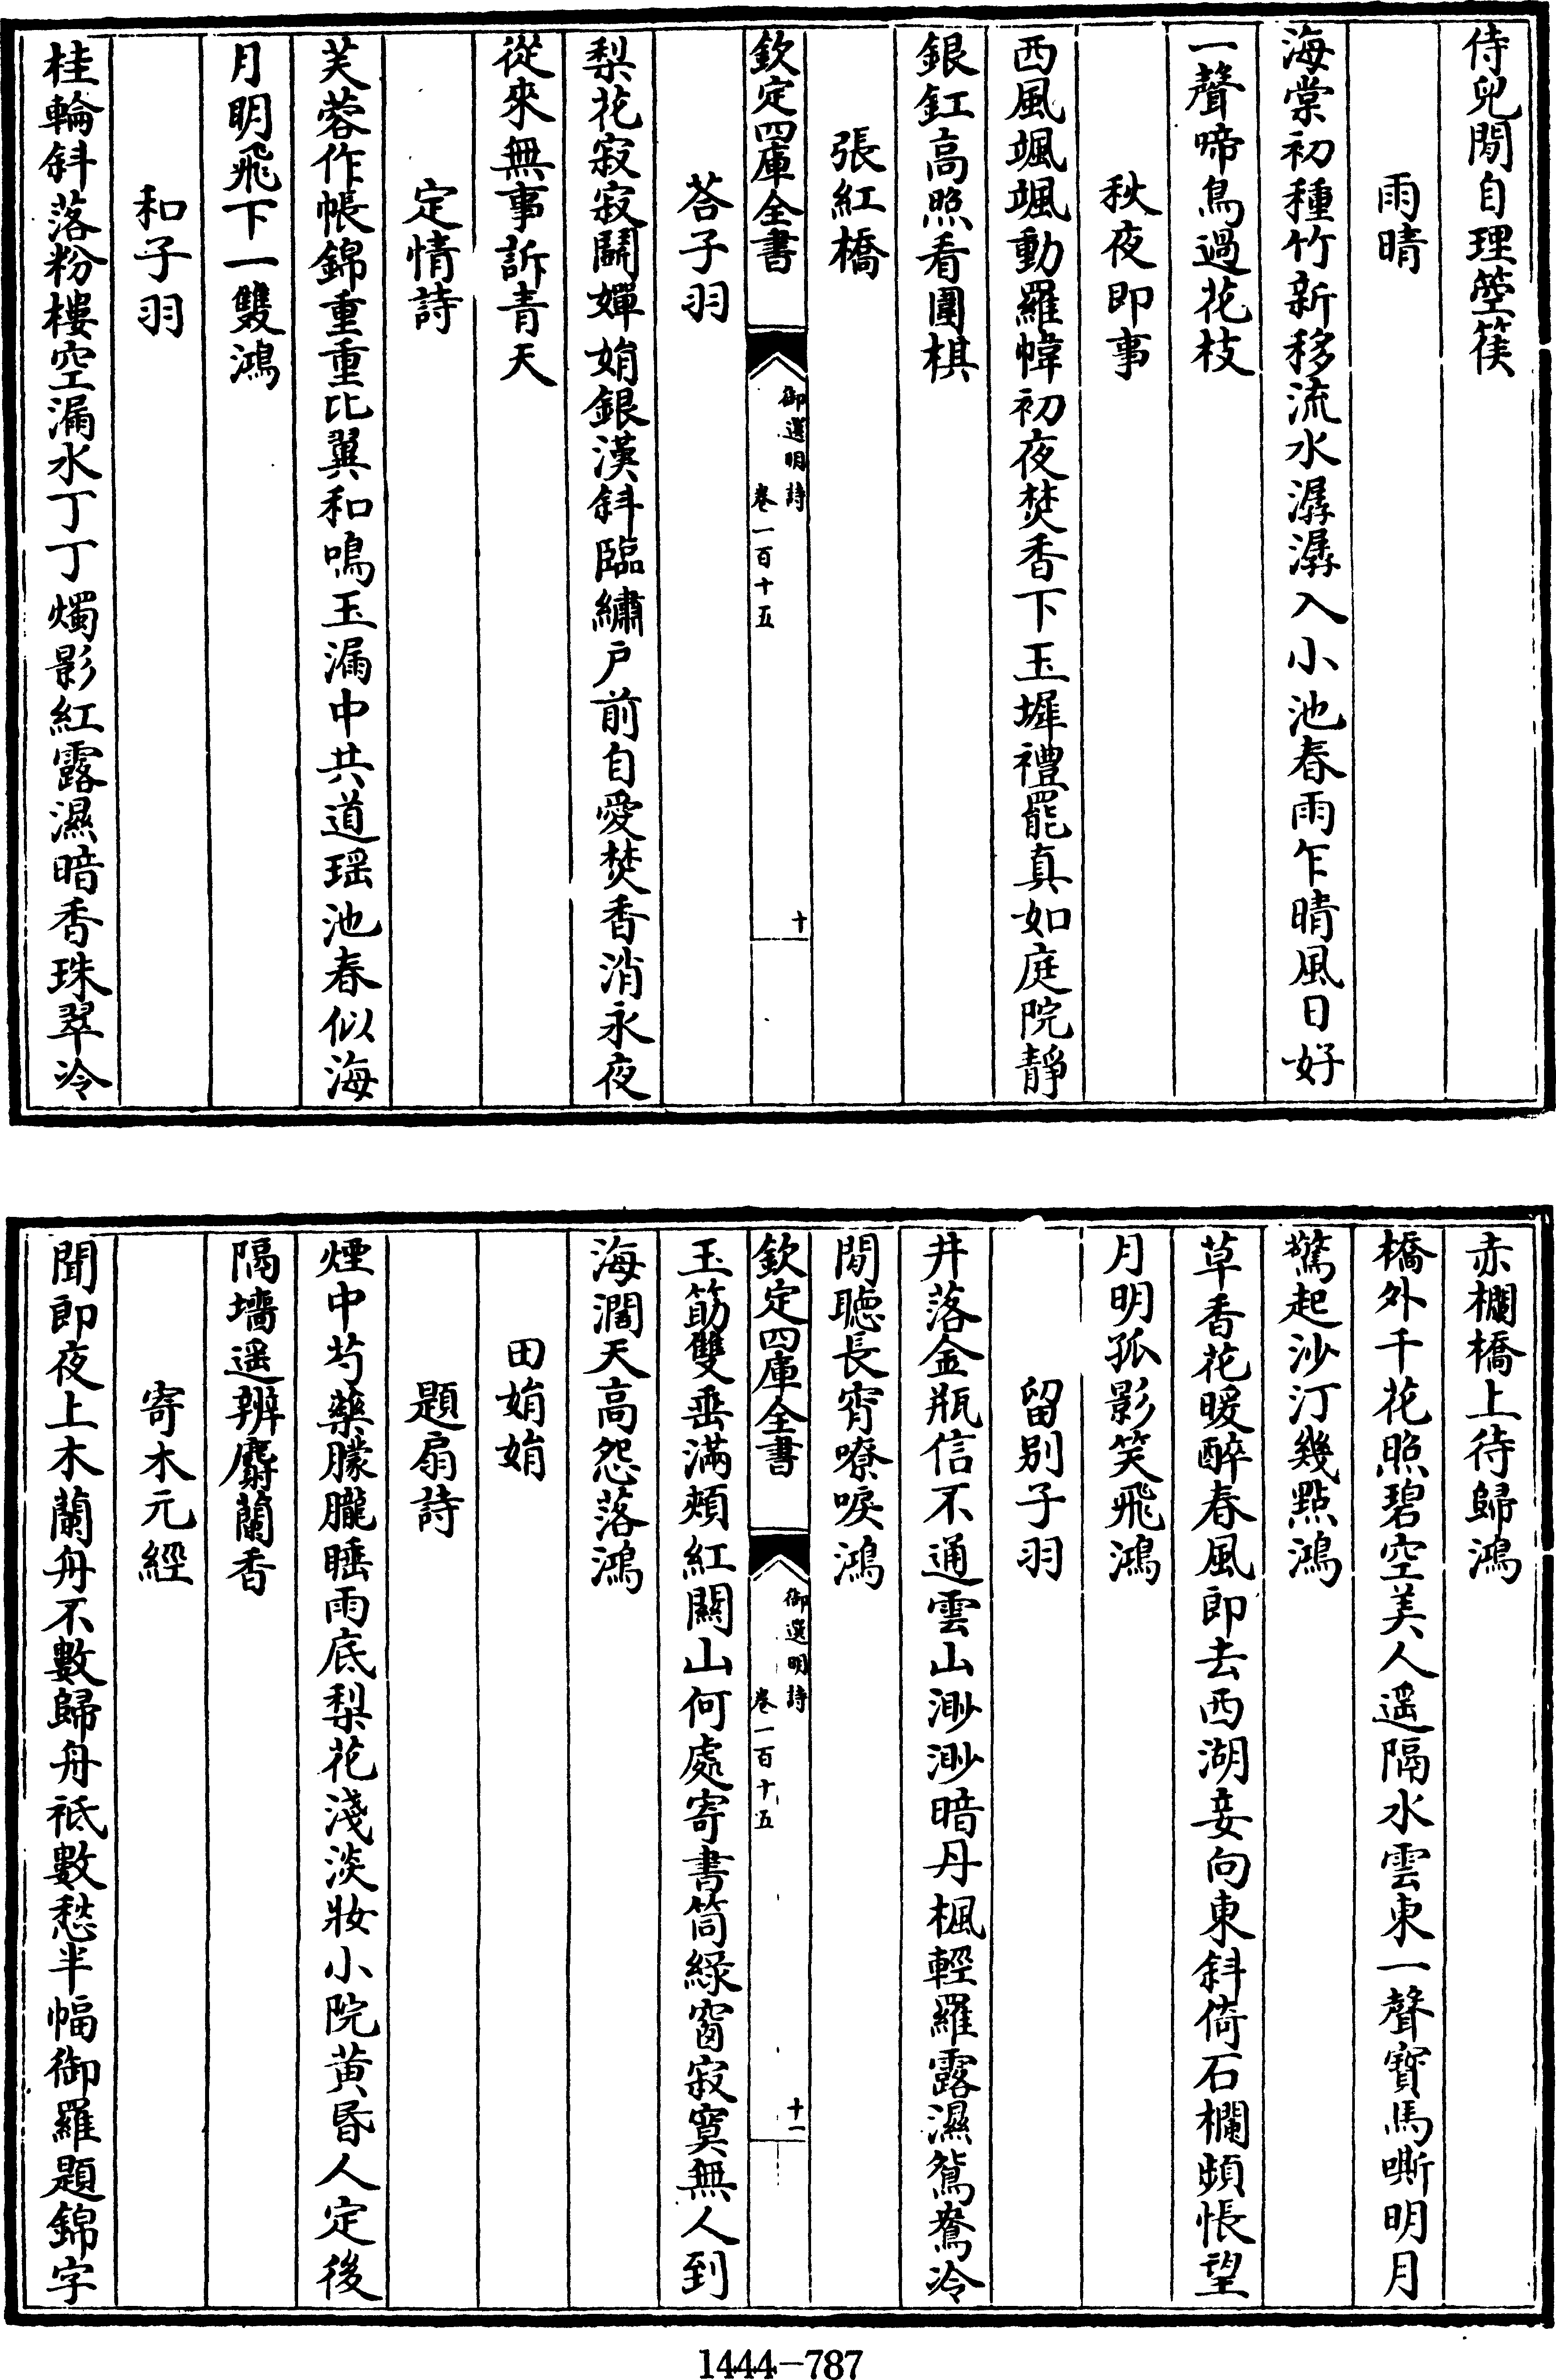 侍兒閒自理箜篌
雨晴
海棠初種竹新移流水潺潺入小池春雨乍晴風日好
一聲啼鳥過花枝
秋夜即事
西風颯颯動羅幃初夜焚香下玉墀禮罷真如庭院靜
銀釭高照看圍棋
張紅橋
欽定四庫全書
御選明詩
卷一百十五
十
荅子羽
梨花寂寂鬭嬋娟銀漢斜臨繡户前自愛焚香消永夜
從來無事訴青天
定情詩
芙蓉作帳錦重重比翼和鳴玉漏中共道瑶池春似海
月明飛下一雙鴻
和子羽
桂輪斜落粉樓空漏水丁丁燭影紅露濕暗香珠翠冷
赤欄橋上待歸鴻
橋外千花照碧空美人遥隔水雲東一聲寳馬嘶明月
驚起沙汀幾點鴻
草香花暖醉春風郎去西湖妾向東斜倚石欄頻悵望
月明孤影笑飛鴻
留別子羽
井落金瓶信不通雲山渺渺暗丹楓輕羅露濕鴛鴦冷
閒聴長宵嘹唳鴻
欽定四庫全書
御選明詩
卷一百十五
十一
玉筯雙垂滿頰紅關山何處寄書筒緑窗寂寞無人到
海濶天高怨落鴻
田娟娟
題扇詩
煙中芍藥朦朧睡雨底梨花淺淡妝小院黄昏人定後
隔墻遥辨麝蘭香
寄木元經
聞郎夜上木蘭舟不數歸舟秪數愁半幅御羅題錦字
1444-787